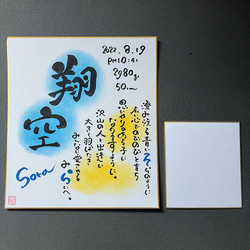 2022.8.19
PM10:41
2980g
50cm
翔空
Sora
澄み渡る青いそらのように
広い心でのびのびと育ち
思いやりのある子に
なりますように。
沢山の人と出逢い
大きく羽ばたき
みんなに愛される
みらいへ。